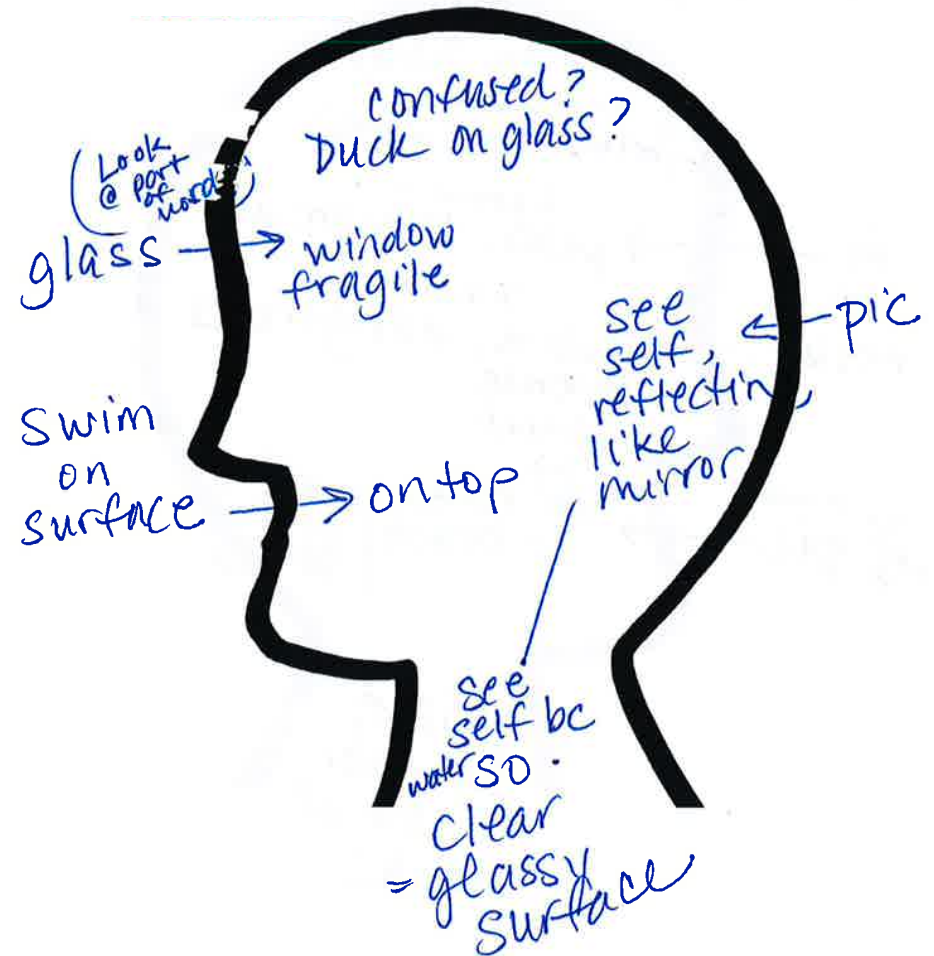 confused?
Duck on glass?
(Look
@ part
of
word)
glass → window
fragile
see
self,
reflectin,
like
mirror
← pic
swim
on
surface → on top
see
self bc
water so
clear
= glassy
surface